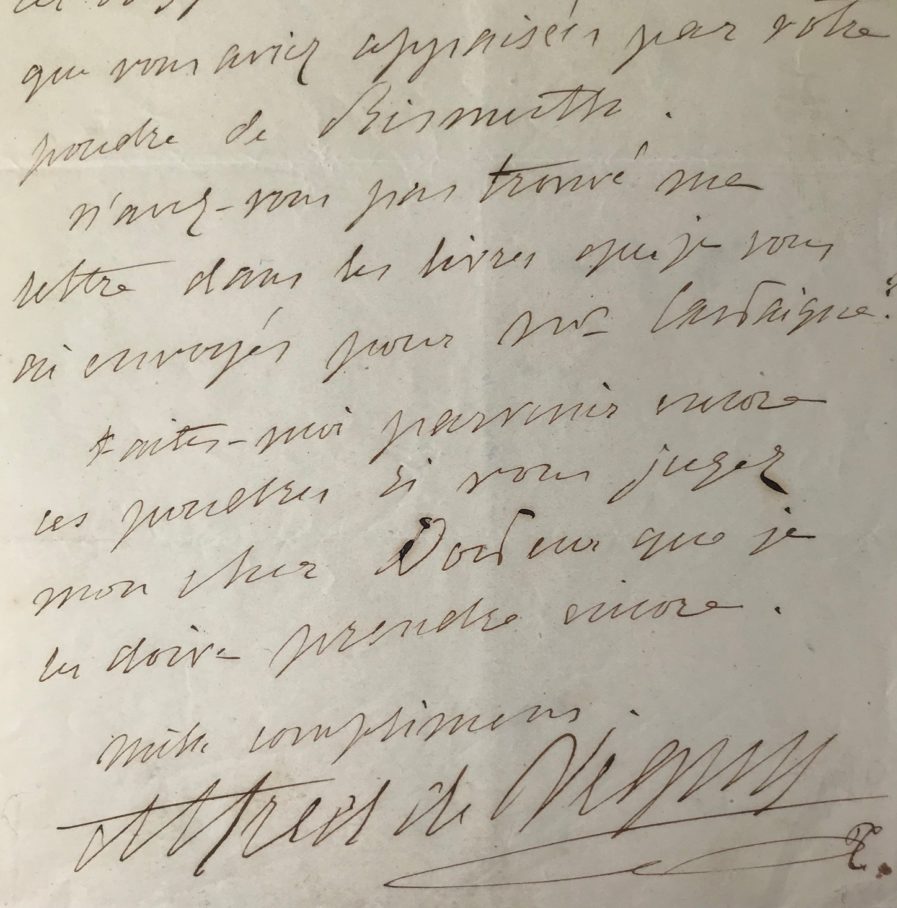 que vous aviez appaisées par votre
poudre de Bismuth.
n'avez-vous pas trouvé ma
lettre dans les livres que je vous
ai envoyés pour
Faites-moi parvenir encore
ces poudres si vous jugez
mon cher Docteur que je
les doive prendre encore.
mille complimens.
Alfred de Vigny